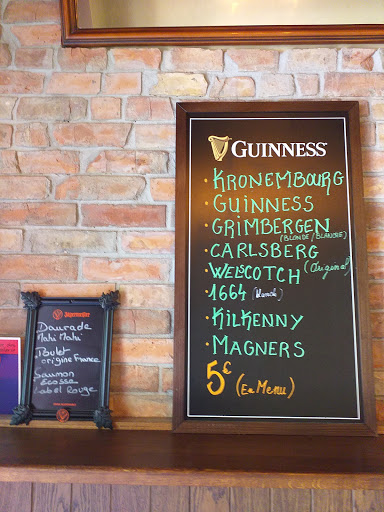 GUINNESS
• KRONEMBOURG
• GUINNESS
• GRIMBERGEN
(BLONDE / BLANCHE)
• CARLSBERG
• WELSCOTCH (Original)
• 1664 (blanche)
• KILKENNY
• MAGNERS
5€ (En Menu)
Jägermeister
Daurade
Mahi Mahi
Poulet
origine France
Saumon
Ecosse
Label Rouge